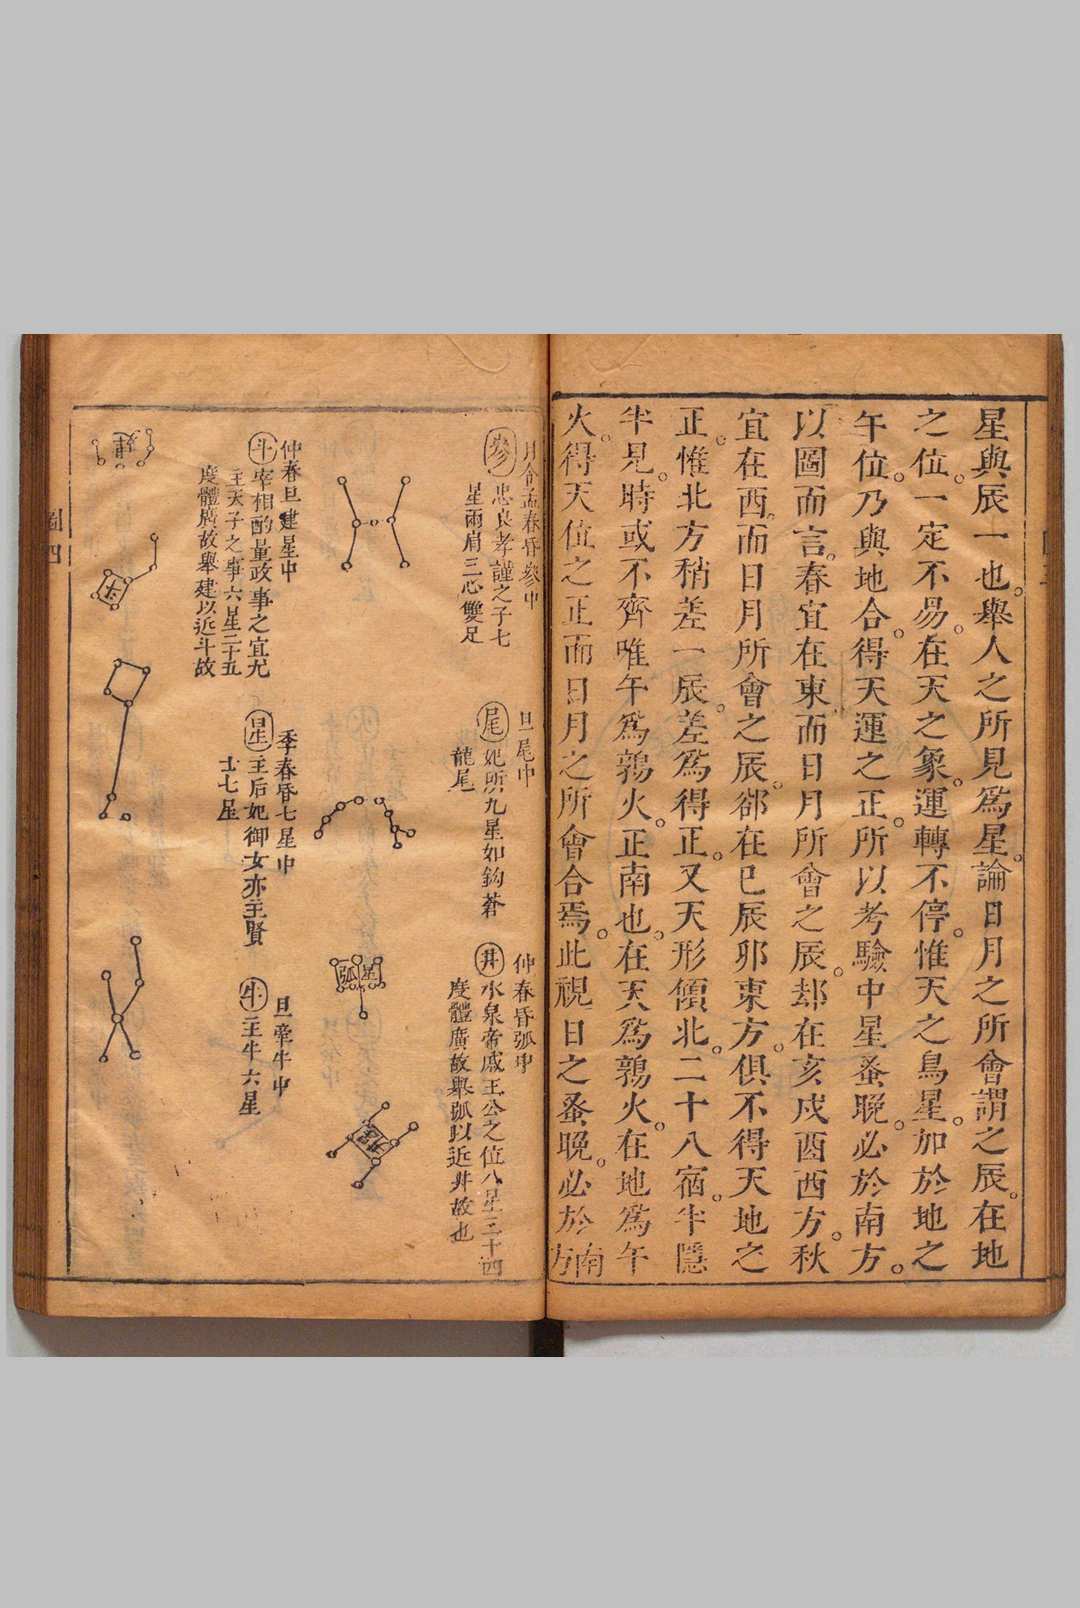 星與辰一也。舉人之所見爲星。論日月之所會謂之辰。在地
之位。一定不易。在天之象。運轉不停。惟天之鳥星。加於地之
午位。乃與地合。得天運之正。所以考驗中星蚤晚。必於南方。
以圖而言。春宜在東。而日月所會之辰。却在亥戍酉西方。秋
宜在西。而日月所會之辰。郤在巳辰夘東方。俱不得天地之
正。惟北方稍差一辰。差爲得正。又天形傾北。二十八宿。半隱
半見。時或不齊唯午爲鶉火。正南也。在天爲鶉火。在地爲午
火。得天位之正而日月之所會合焉。此視日之蚤晚。必於南方
月令孟春昏參中
參 忠良孝謹之子七
星兩肩三心雙足
旦尾中
尾 妃所九星如鈎蒼
龍尾
仲春昏弧中
井 水泉帝戚王公之位八星三十四
度體廣故舉弧以近井故也
弧
井
仲春旦建星中
斗 宰相酌量政事之宜尤
主天子之事六星二十五
度體廣故舉建以近斗故
季春昏七星中
星 主后妃御女亦主賢
士七星
旦牽牛中
牛 主牛六星
建
圖四